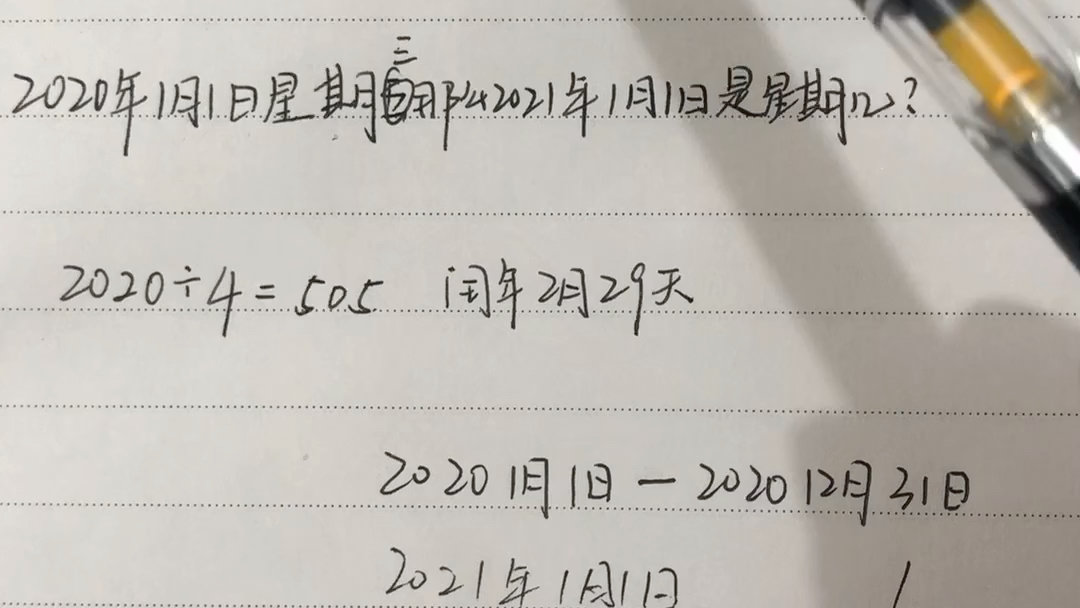 三
2020年1月1日星期 那么2021年1月1日是星期几?
2020÷4=505 闰年2月29天
2020 1月1日—2020 12月31日
2021年1月1日 1